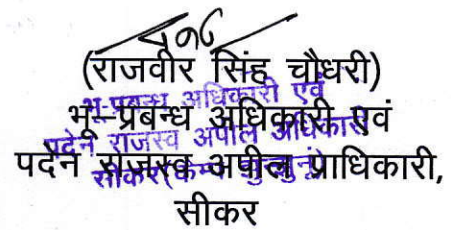 (राजवीर सिंह चौधरी)
भू-प्रबन्ध अधिकारी एवं
पदेन राजस्व अपील प्राधिकारी,
सीकर
भू-प्रबन्ध अधिकारी एवं
पदेन राजस्व अपील अधिकारी
सीकर(कैम्प झुन्झुनूं)